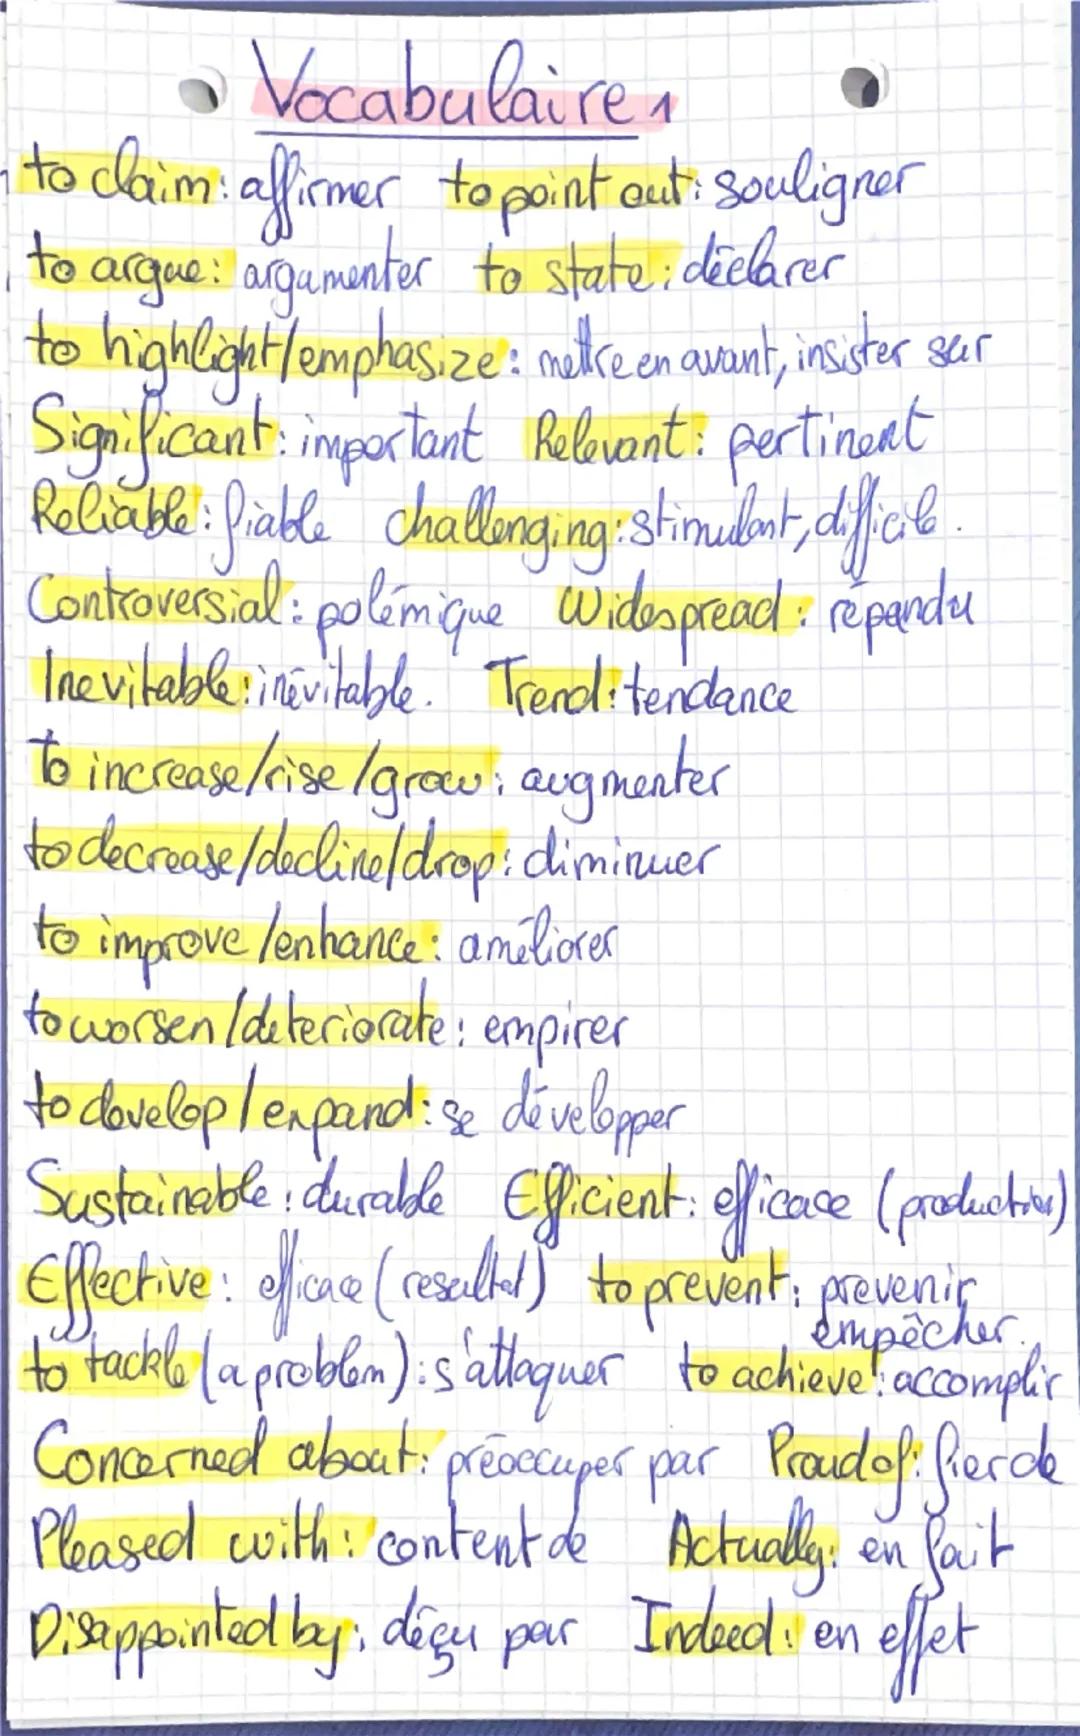 Vocabulaire 1
to claim: affirmer to point out: souligner
to argue: argumenter to state: déclarer
to highlight/emphasize: mettre en avant, insister sur
Significant: important Relevant: pertinent
Reliable: fiable challenging: stimulant, difficile.
Controversial: polémique Widespread: répandu
Inevitable: inévitable. Trend: tendance
to increase/rise/grow: augmenter
to decrease/decline/drop: diminuer
to improve/enhance: améliorer
to worsen/deteriorate: empirer
to develop/expand: se développer
Sustainable: durable Efficient: efficace (production)
Effective: efficace (resultat) to prevent: prevenir
empêcher.
to tackle (a problem): s'attaquer to achieve: accomplir
Concerned about: préoccuper par Proud of: fier de
Pleased with: content de Actually: en fait
Disappointed by: déçu par Indeed: en effet